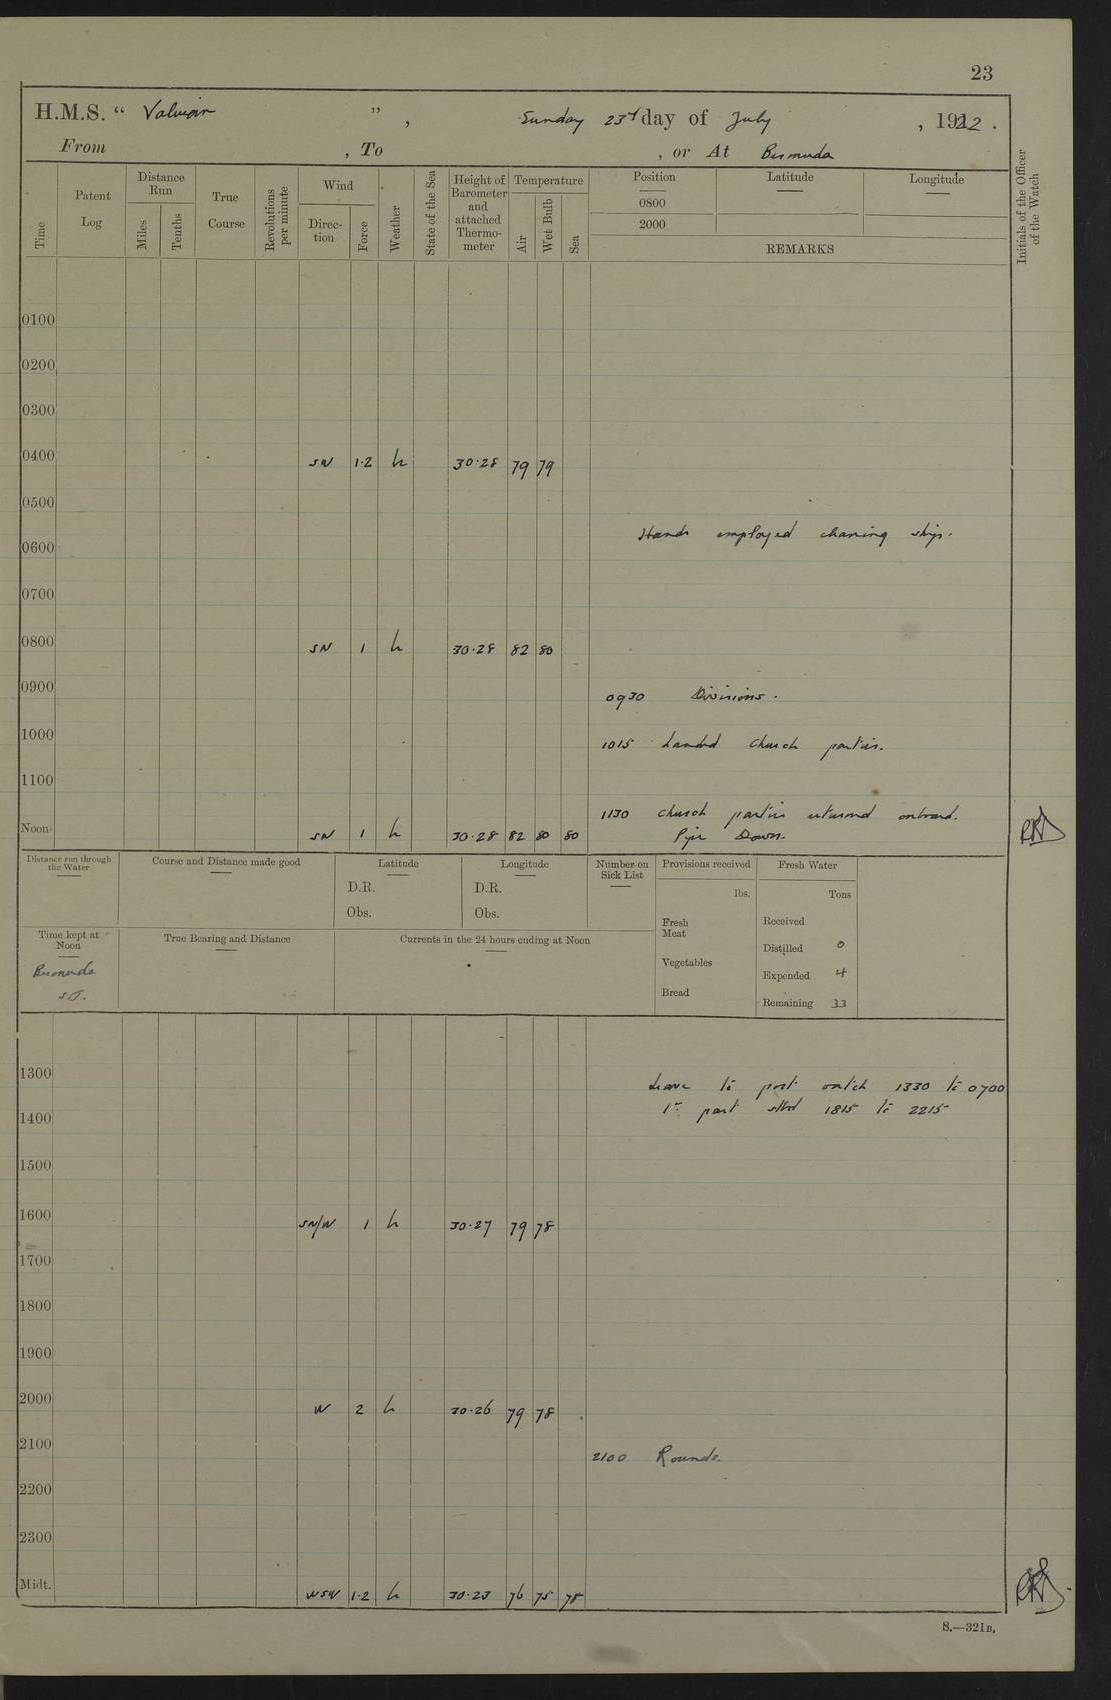 23
H.M.S. " Valerian " , Sunday 23rd day of July , 1922 .
From , To , or At Bermuda
Time Patent Log Distance Run Miles Tenths True Course Revolutions per minute Wind Direc-tion Force Weather State of the Sea Height of Barometer and attached Thermo-meter Temperature Air Wet Bulb Sea Position Latitude Longitude Initials of the Officer of the Watch
0800
2000
REMARKS
0100
0200
0300
0400 SW 1·2 b 30·28 79 79
0500
Hands employed cleaning ship.
0600
0700
0800 SW 1 b 30·28 82 80
0900
0930 Divisions.
1000
1015 Landed Church parties.
1100
1130 Church parties returned onboard.
Noon SW 1 b 30·28 82 80 80 Pipe Down.
Distance run through the Water Course and Distance made good Latitude Longitude Number on Sick List Provisions received Fresh Water
D.R. D.R. lbs. Tons
Obs. Obs.
Fresh Meat Received
Time kept at Noon True Bearing and Distance Currents in the 24 hours ending at Noon
Distilled 0
Vegetables
Bermuda
Expended 4
S.T.
Bread
Remaining 33
1300
Leave to port watch 1330 to 0700
1400 1st part stbd 1815 to 2215
1500
1600 SW/W 1 b 30·27 79 78
1700
1800
1900
2000 W 2 b 30·26 79 78
2100
2100 Rounds.
2200
2300
Midt. WSW 1·2 b 30·23 76 75 78
S.—321B,